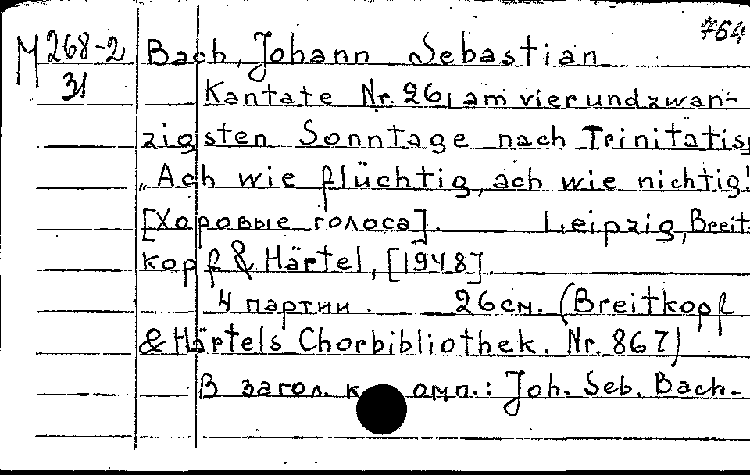 764
М 268-2 Bach, Johann Sebastian
31
Kantate Nr. 26, am vierundzwan-
zigsten Sonntage nach Trinitatis,
„Ach wie flüchtig, ach wie nichtig!
[Хоровые голоса]. Leipzig, Breit-
kopf & Härtel, [1948].
4 партии. 26см. (Breitkopf
& Härtels Chorbibliothek. Nr. 867)
В загол. к омп.: Joh. Seb. Bach.